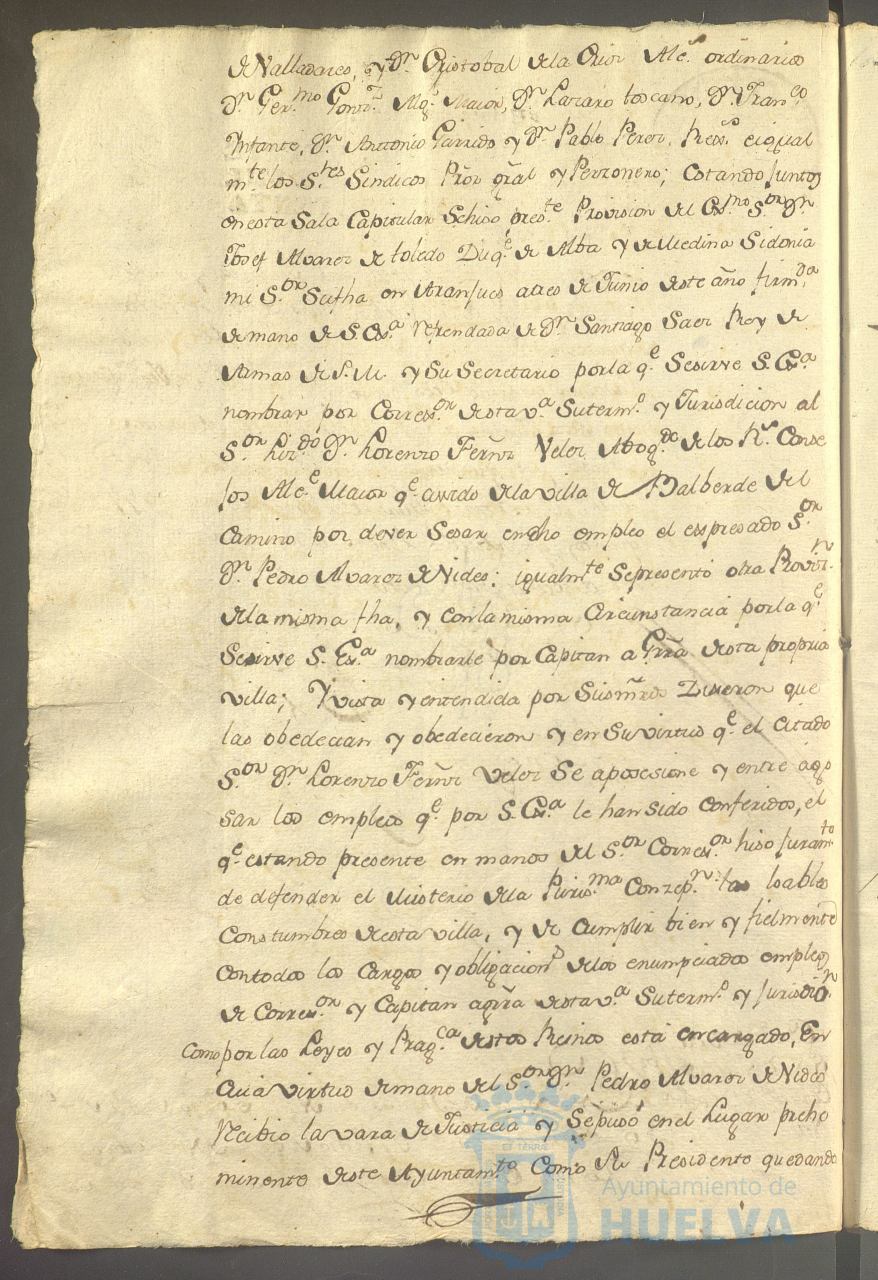 de Valladares, y Dn Cristobal de la Orior Alcs ordinarios
Dn Germo Gonz. Alg. Maior, Dn Lazaro toscano, Dn Franco
Infante, Dn Anttonio Garrido y Dn Pablo Perez, Ress eigual
mte los Stres Sindicos Pror gral y Perzonero; Estando Juntos
en esta Sala Capitular Sehiso preste Provision del Exmo Sor Dn
Josef Alvarez de toledo Duqe de Alba y de Medina Sidonia
mi Sor Sufha en Aranjues atres de Junio deste año firmda
de mano de S. Exa Refrendada de Dn Santiago Saez Rey de
Armas de S. M. y Su Secretario por la qe Sesirve S. Exa
nombrar por Corresor desta va Su termo y Jurisdicion al
Sor Lizdo Dn Lorenzo Fernz Velez Abogdo de los Rs Conse
jos Alce Maior qe asido dela villa de Balberde del
Camino por dever Sesar endho empleo el esspresado Sor
Dn Pedro Alvarez de Nides; igualmte Sepresentó otra Provizn
dela misma fha, y con la misma Circunstancia por la qe
Sesirve S. Exa nombrarle por Capitan a Grra desta propria
villa; Y vista y entendida por Susmrds Dixeron que
las obedecian y obedecieron y en Su virtud qe el citado
Sor Dn Lorenzo Fernz Velez Se aposesione y entre a
sar los empleos qe por S. Exa le han sido conferidos, el
qe estando presente en manos del Sor Corresor hiso Juramto
de defender el Misterio dela Purisma Conzepn las loables
Constumbres desta villa, y de Cumplir bien y fielmente
con todos los Cargos y obligacions delos enumpciados empleos
de Corresor y Capitan agrra desta va Su termo y Jurisdión
Como por las Leyes y Pragca destos Reinos está encargado, En
Cuia virtud de mano del Sor Dn Pedro Alvarez de Nides
Recibio la vara de Justicia y Sepuso en el Lugar prehe
minente deste Ayuntamto Como Su Presidente quedando
Ayuntamiento de
HUELVA